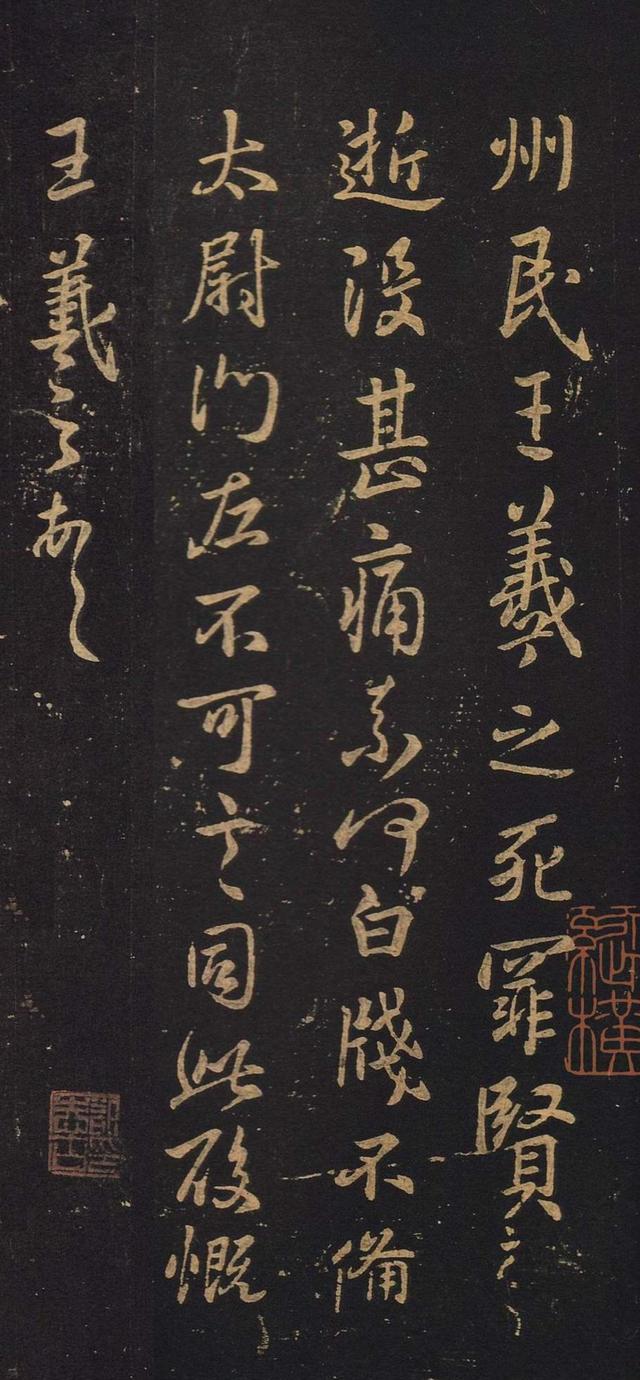 州民王羲之死罪賢
逝没甚痛奈何白牋不備
太尉門左不可言同此慨
王羲之